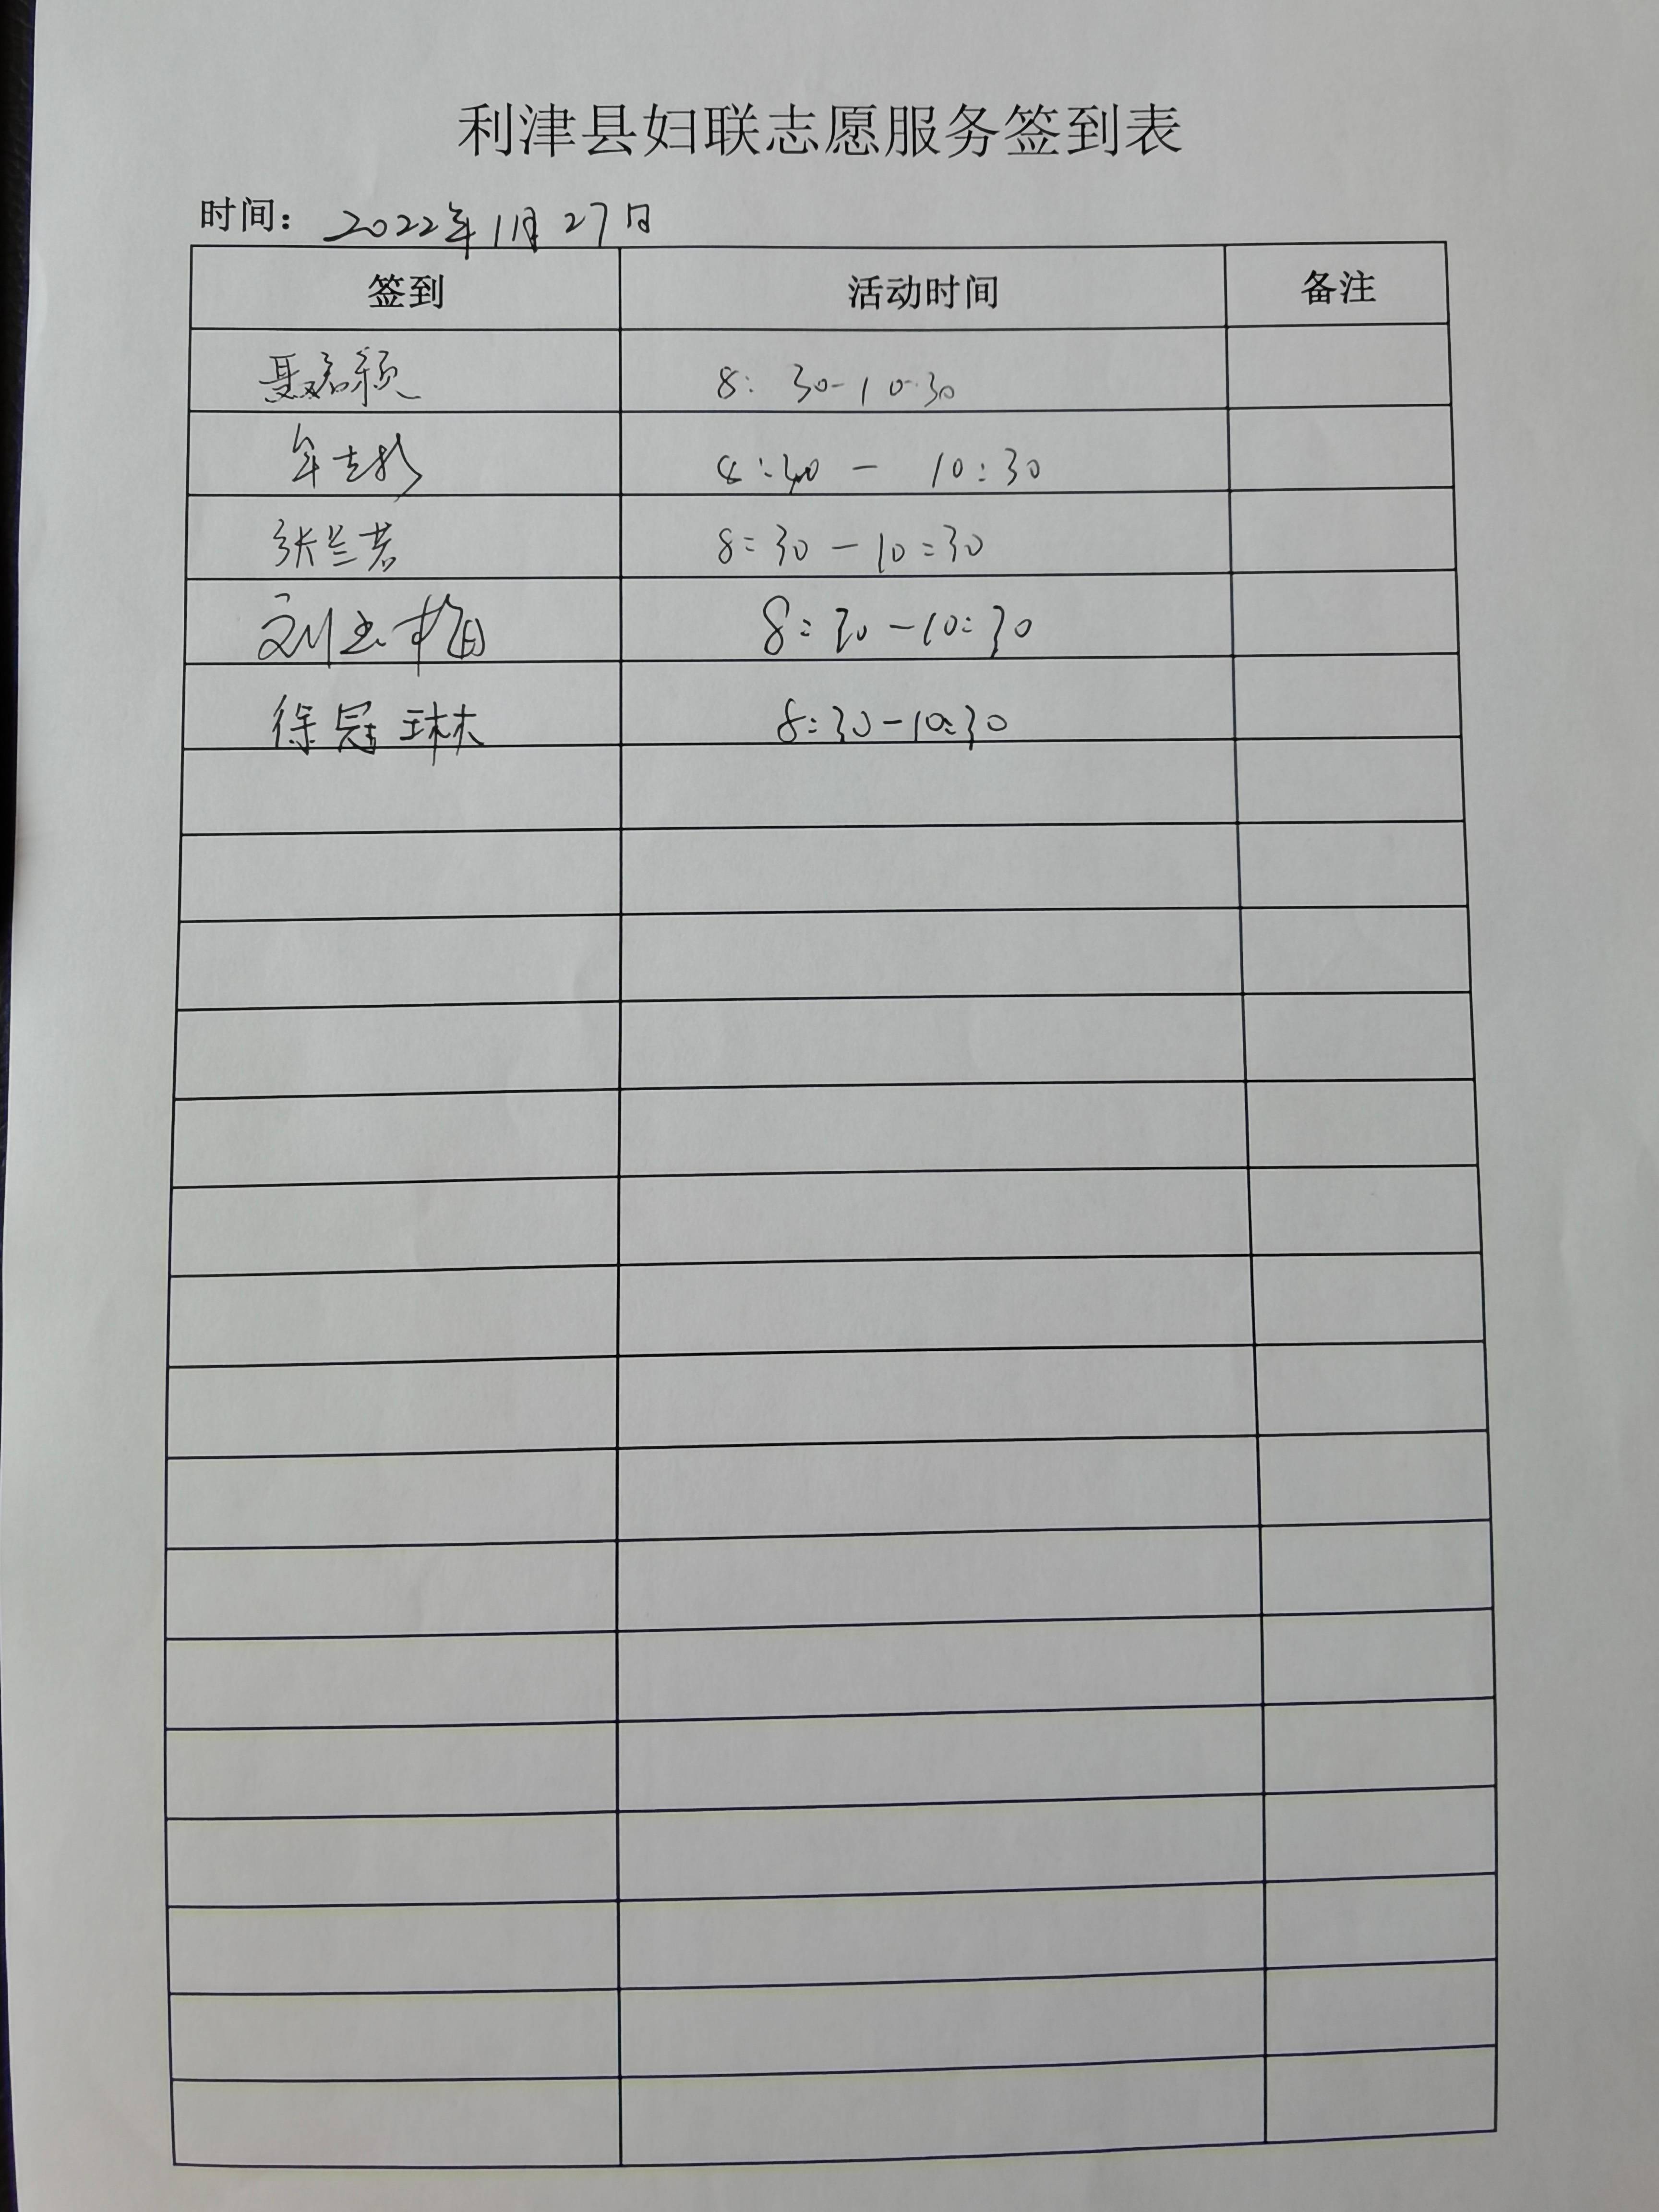 利津县妇联志愿服务签到表
时间： 2022年11月27日
签到 活动时间 备注
聂君颖 8:30-10:30
8:30 - 10:30
张兰若 8:30-10:30
刘玉梅 8:30-10:30
徐冠琳 8:30-10:30